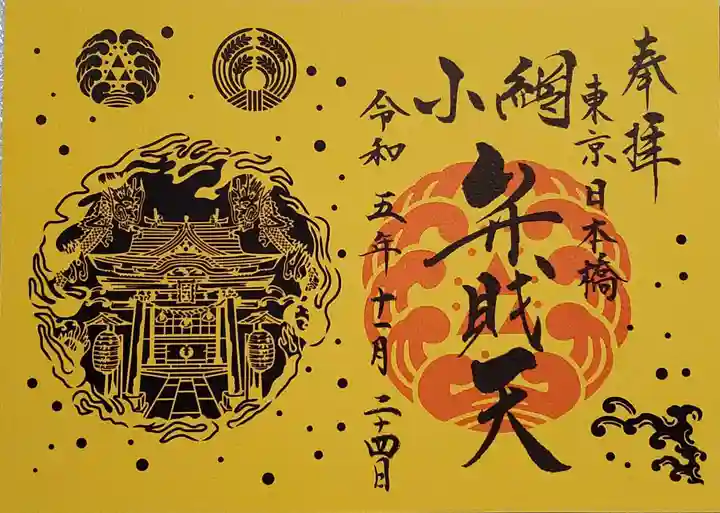 奉拝
東京日本橋
小網
弁財天
令和五年十一月二十四日